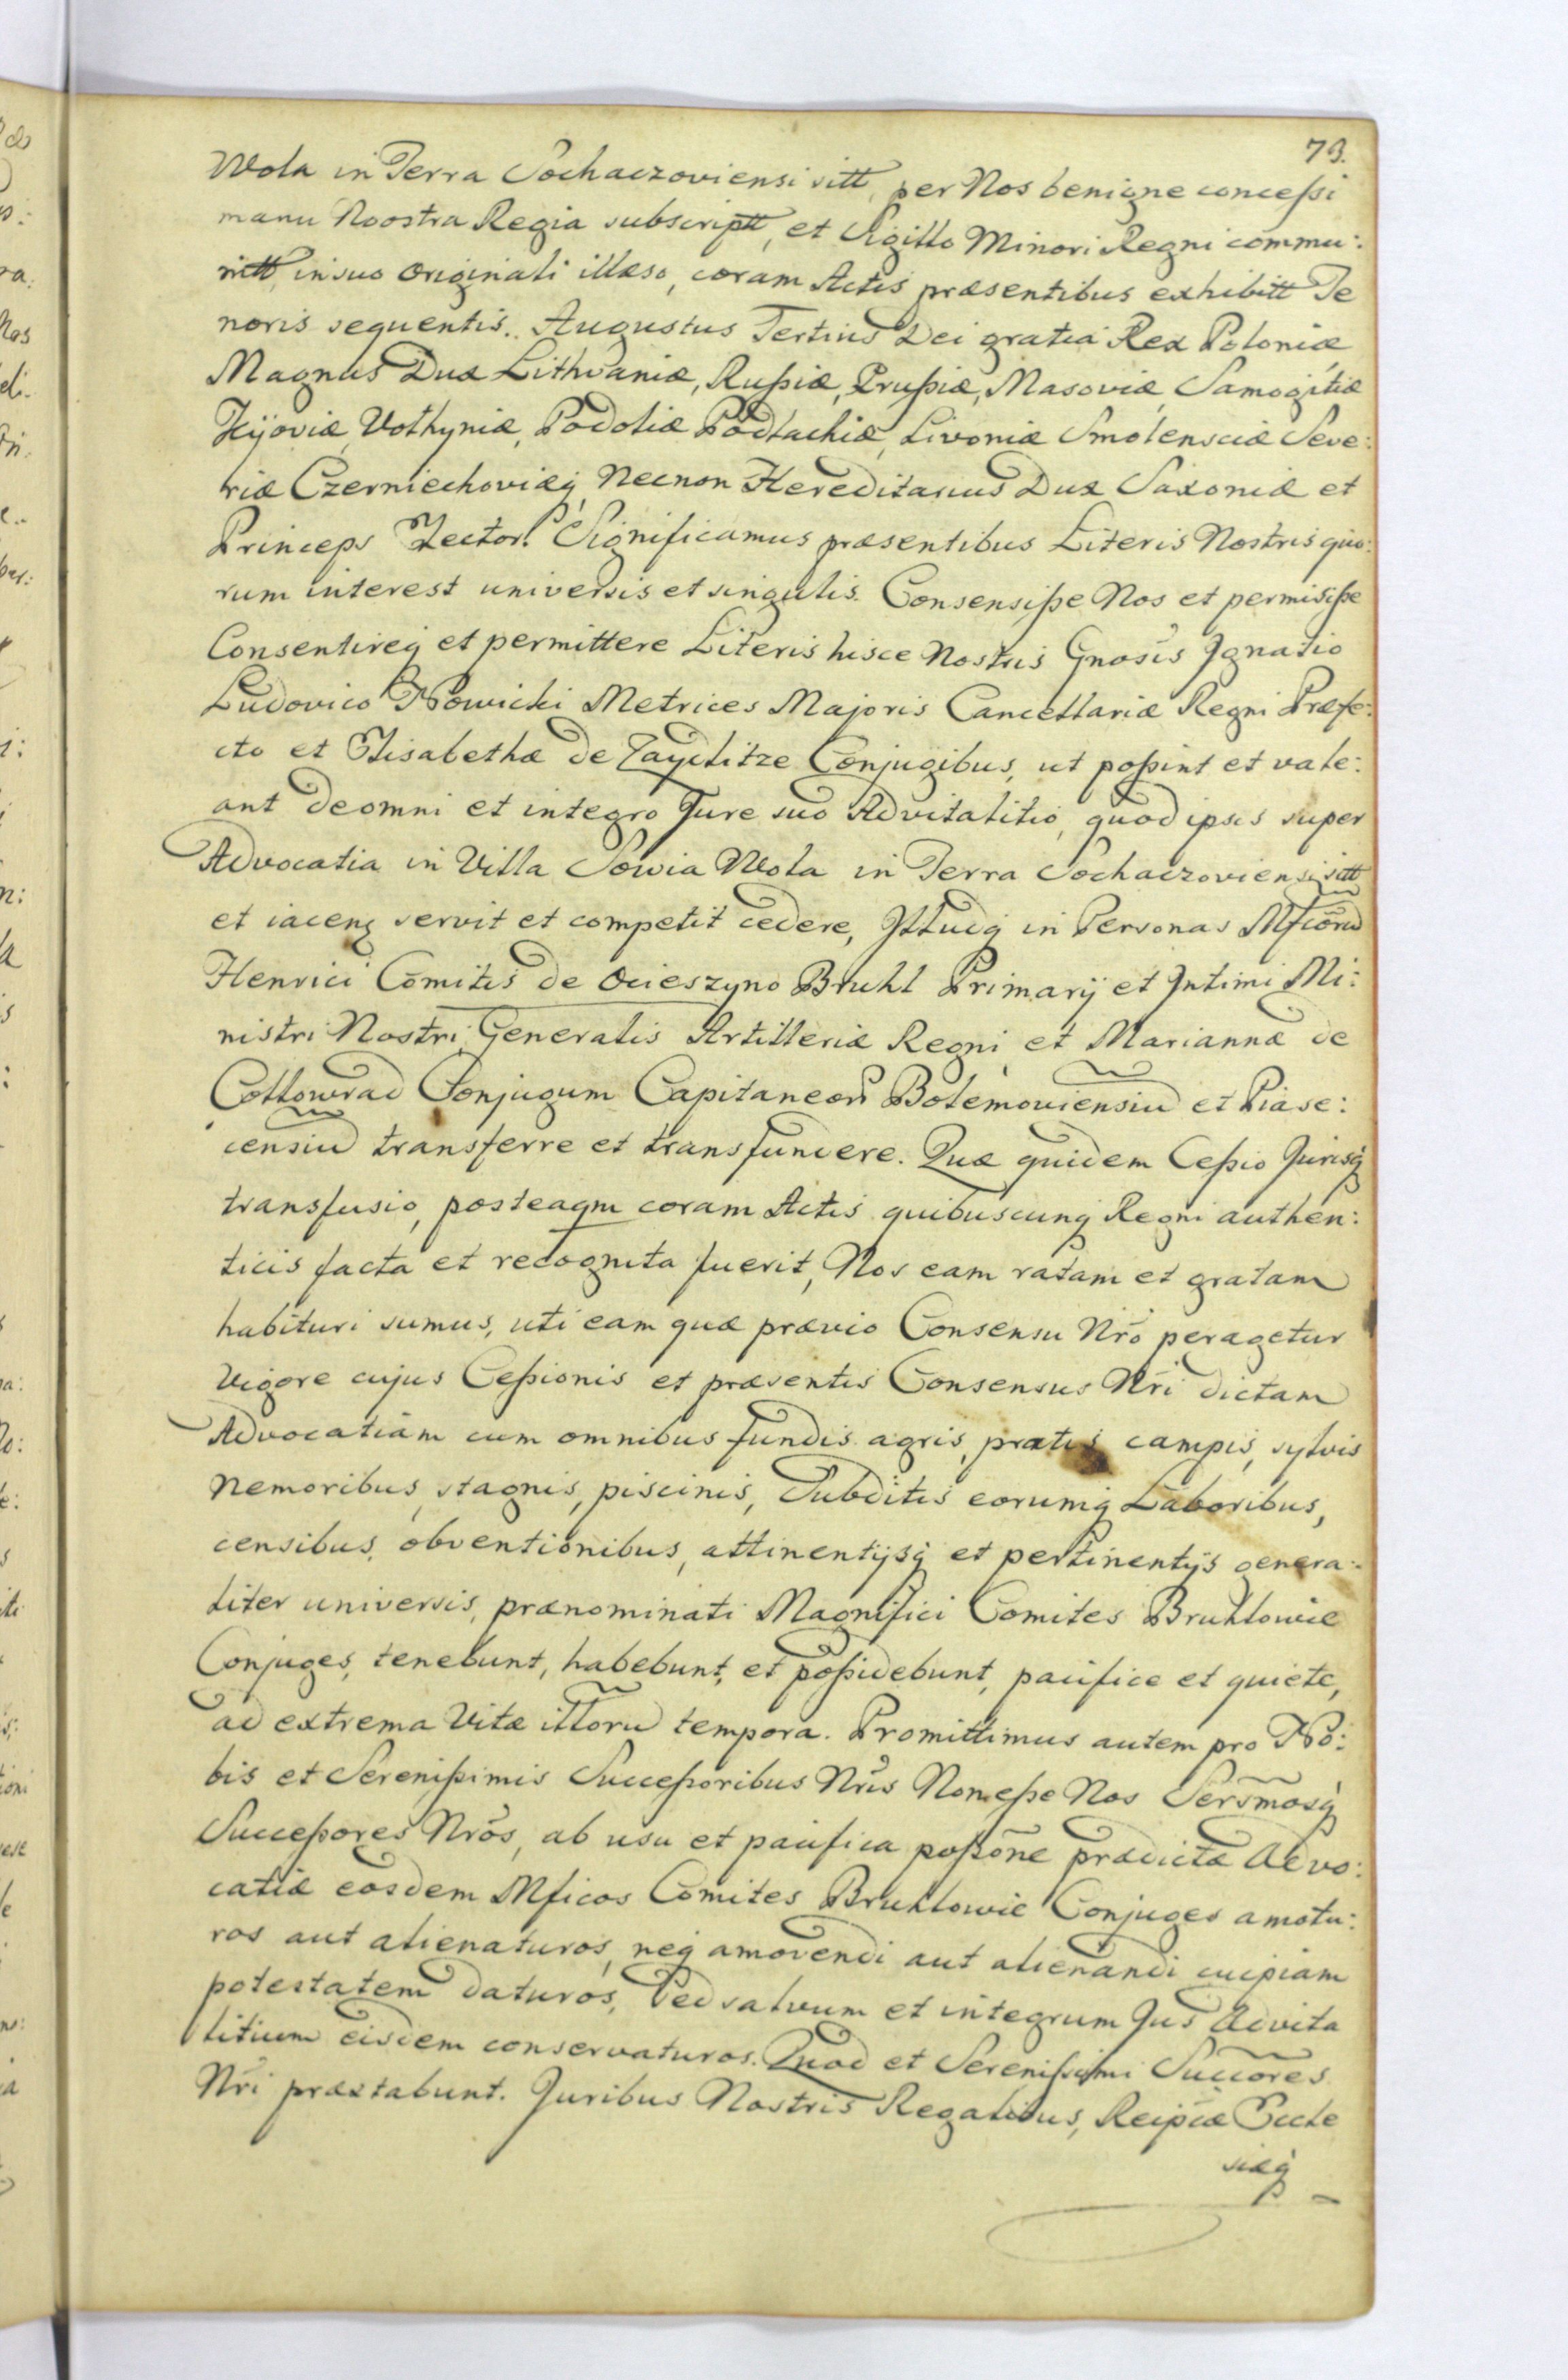 73.
Wola in Terra Sochaczoviensi sitt, per Nos benigne concessi
manu Noostra Regia subscriptt, et Sigillo Minori Regni commu:
nitt, in suo Originali illæso, coram Actis præsentibus exhibitt Te
noris sequentis. Augustus Tertius Dei gratia Rex Poloniæ
Magnus Dux Lithvaniæ, Russiæ, Prussiæ, Masoviæ, Samogitiæ
Kijoviæ, Volhyniæ, Podoliæ Podlachiæ, Livoniæ Smolensciæ Seve:
riæ Czerniechoviæq, Necnon Hereditarius Dux Saxoniæ et
Princeps Elector. Significamus præsentibus Literis Nostris quo:
rum interest universis et singulis. Consensisse Nos et permisisse
Consentireq et permittere Literis hisce Nostris Gnosis Ignatio
Ludovico Nowicki Metrices Majoris Cancellariæ Regni Præfe:
cto et Elisabethæ de Zaydlitze Conjugibus, ut possint et vale:
ant de omni et integro Jure suo Advitalitio, quod ipsis super
Advocatia in Villa Sowia Wola in Terra Sochaczoviensi sitt
et iacenq servit et competit cedere, Illudq in Personas Mficoru
Henrici Comitis de Ocieszyno Bruhl Primarij et Intimi Mi:
nistri Nostri, Generalis Artilleriæ Regni, et Mariannæ de
Collowrad Conjugum Capitaneor Bolemoviensiu et Piase:
censiu transferre et transfundere. Quæ quidem Cessio Jurisq
transfusio, posteaqm coram Actis quibuscunq Regni authen:
ticis facta et recognita fuerit, Nos eam ratam et gratam
habituri sumus, uti eam quæ prævio Consensu Nro peragetur
Vigore cujus Cessionis et præsentis Consensus Nri dictam
Advocatiam cum omnibus fundis agris, pratis campis, sylvis
Nemoribus, stagnis, piscinis, Subditis eorumq Laboribus,
censibus, obventionibus, attinentijsq et pertinentijs genera:
liter universis, prænominati Magnifici Comites Bruhlowie
Conjuges, tenebunt, habebunt, et possidebunt, pacifice et quiete,
ad extrema Vitæ illoru tempora. Promittimus autem pro No:
bis et Serenissimis Successoribus Nris Non esse Nos Sermosq
Successores Nros, ab usu et pacifica possone prædictæ Advo:
catiæ eosdem Mficos Comites Bruhlowie Conjuges amotu:
ros aut alienaturos, neq amovendi aut alienandi cuipiam
potestatem daturos, Sed salvum et integrum Jus Advita
litium eisdem conservaturos. Quod et Serenissimi Succores
Nri præstabunt. Juribus Nostris Regalibus, Reipcæ Eccle
siæq